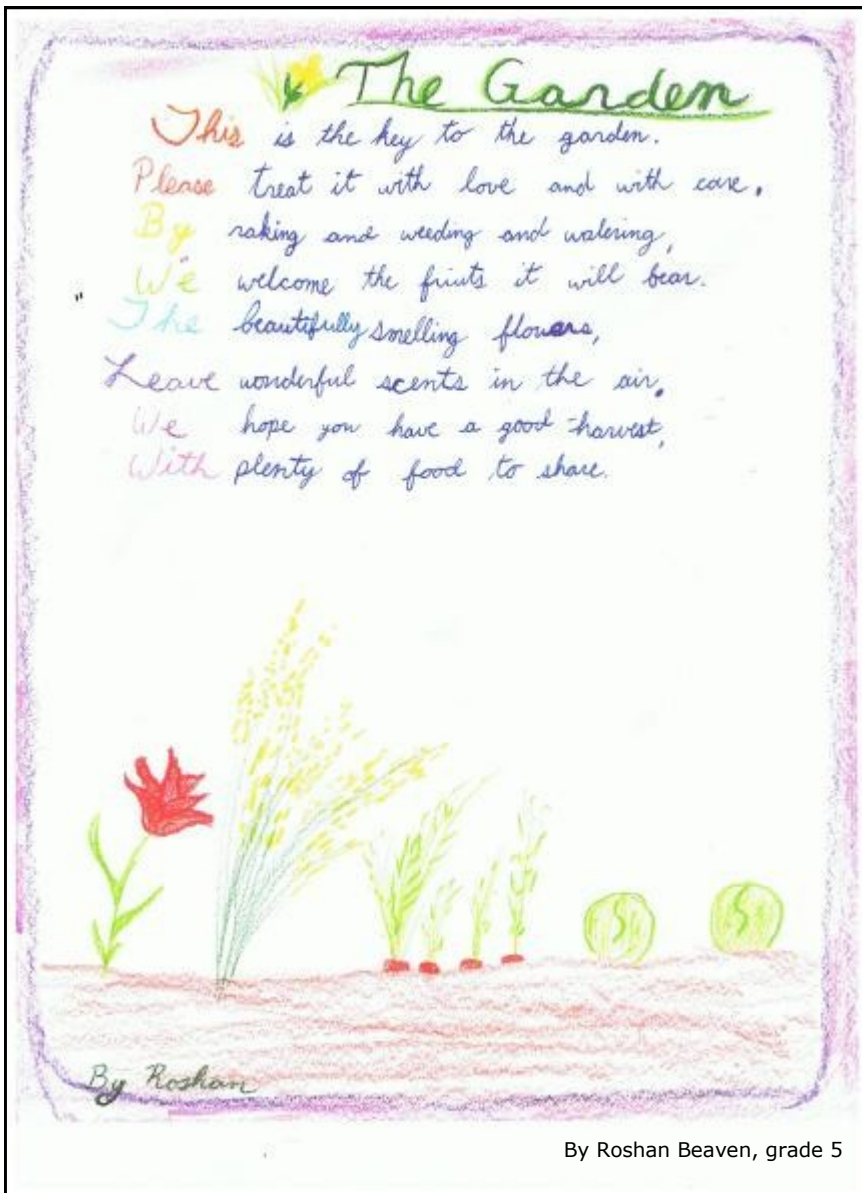 The Garden
This is the key to the garden.
Please treat it with love and with care.
By raking and weeding and watering,
We welcome the fruits it will bear.
The beautifully smelling flowers,
Leave wonderful scents in the air.
We hope you have a good harvest,
With plenty of food to share.
By Roshan
By Roshan Beaven, grade 5